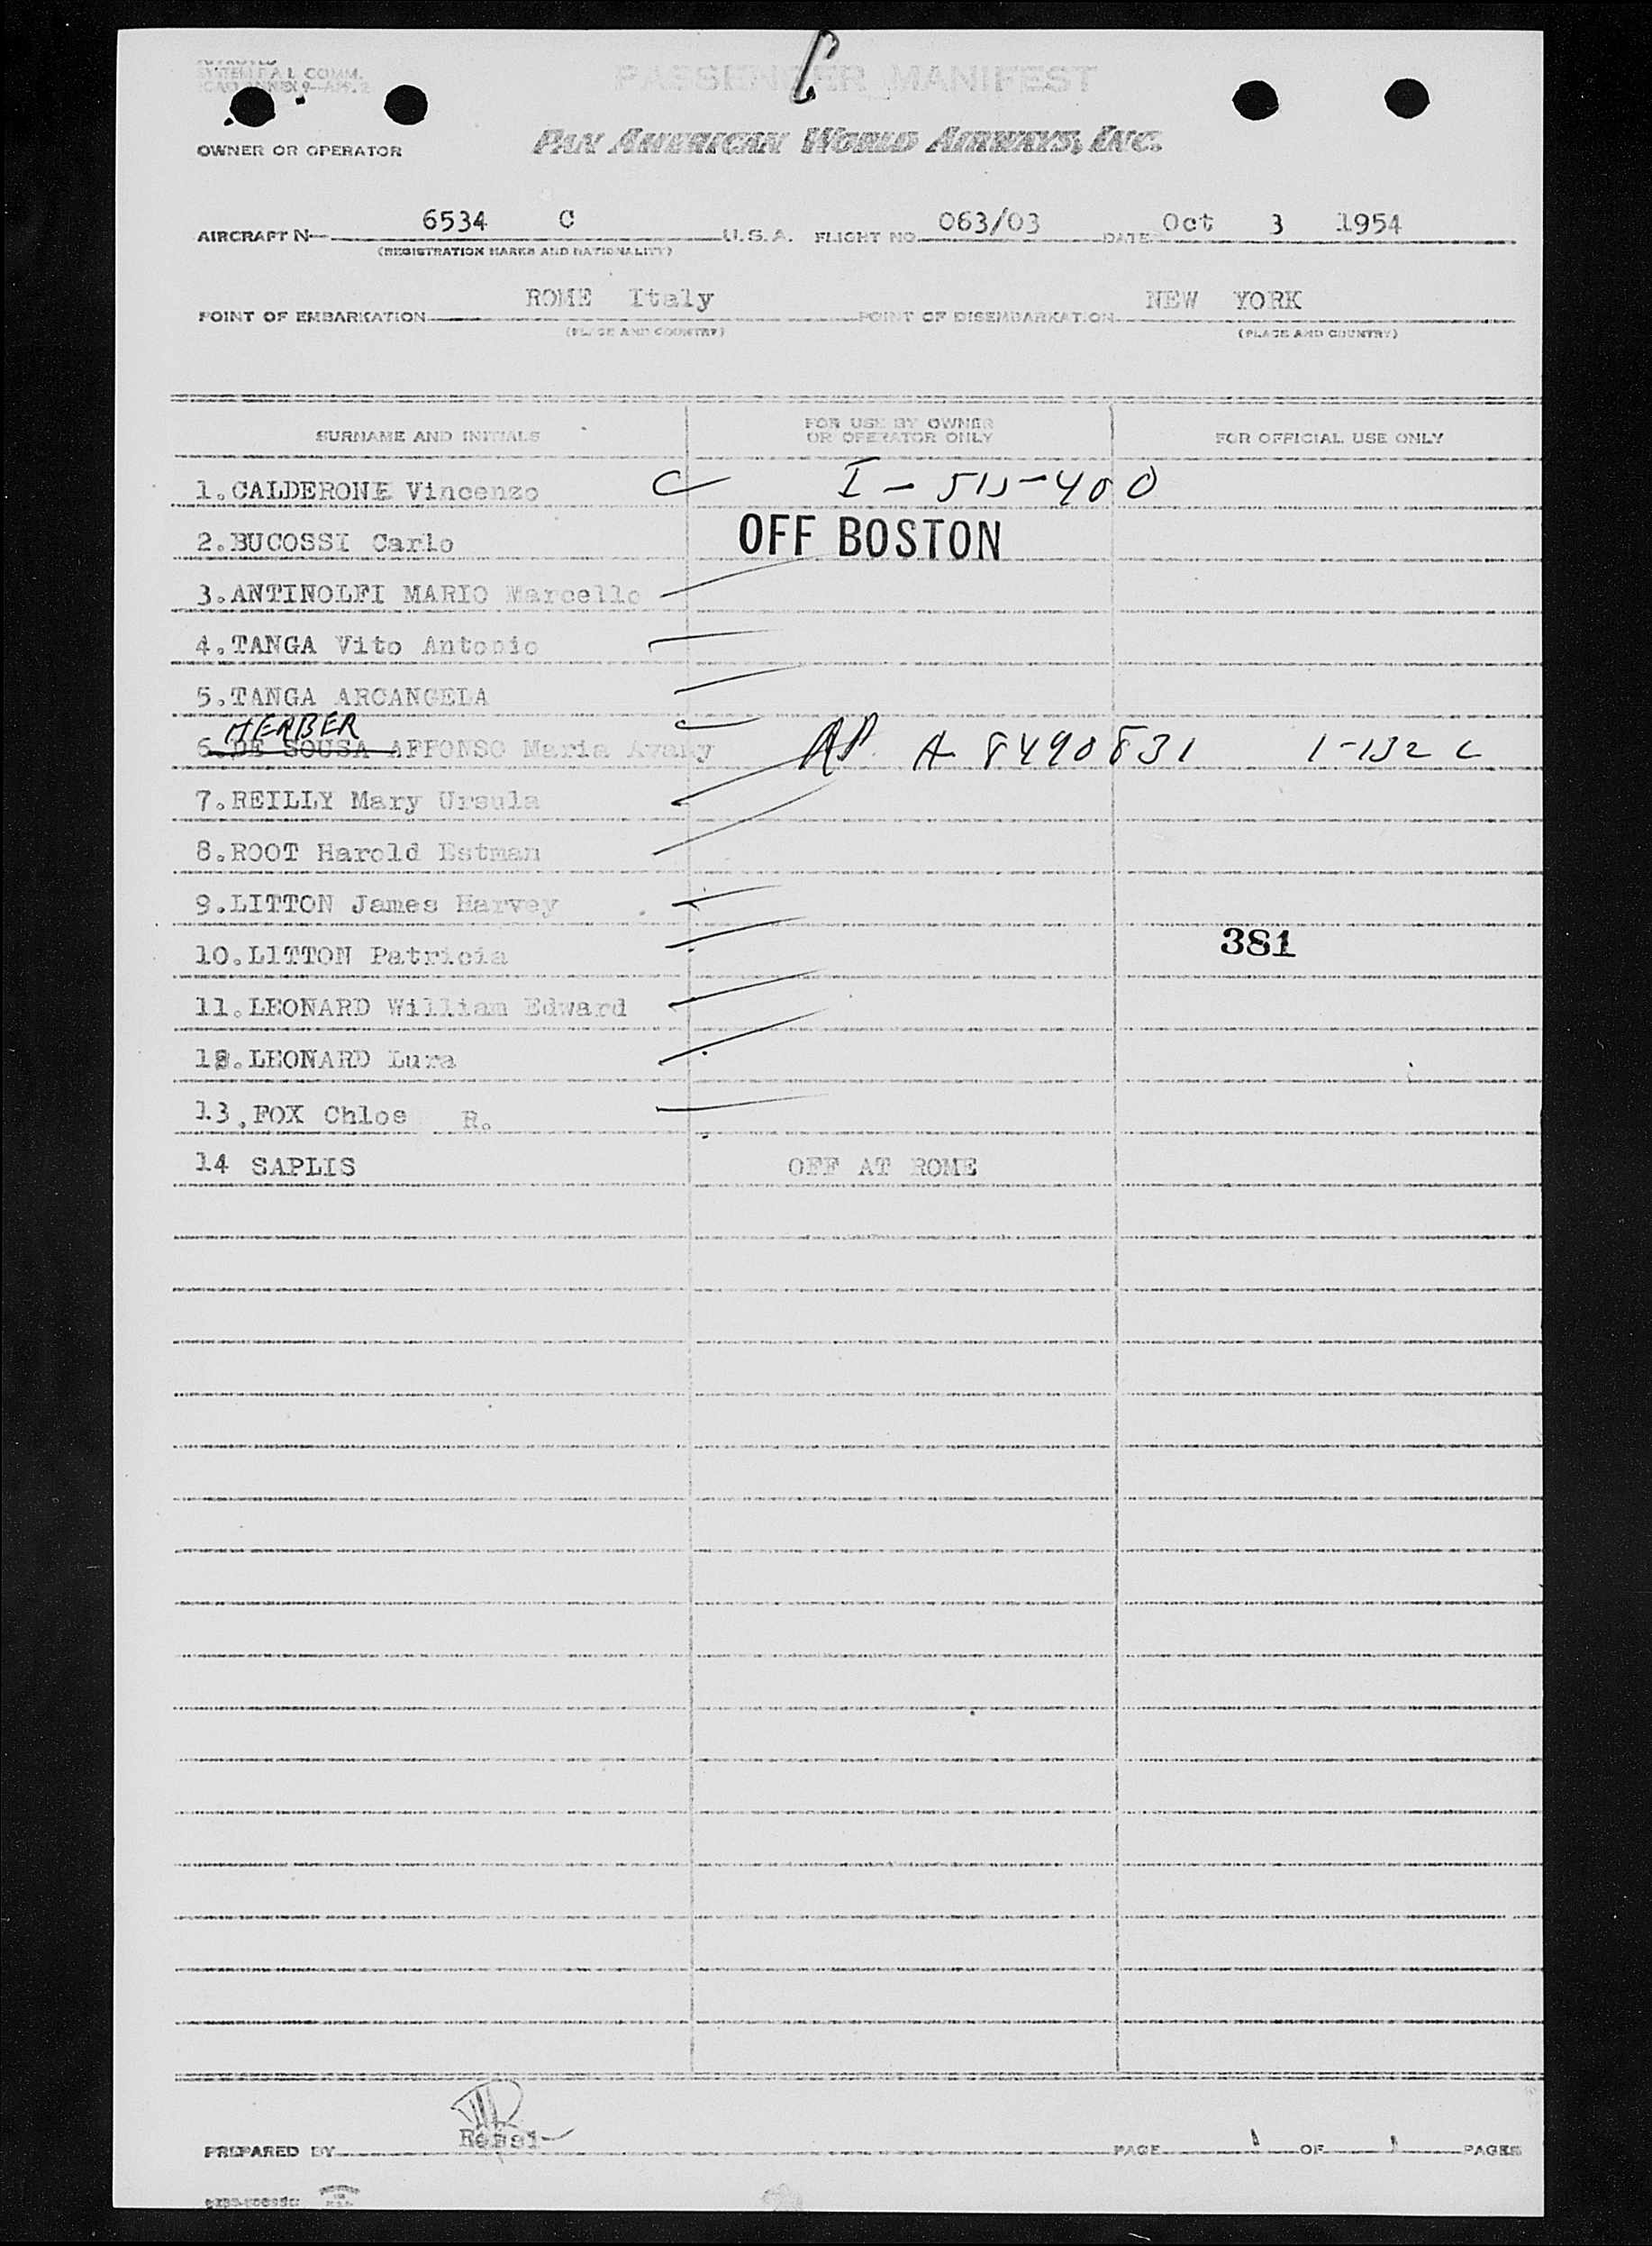 SYSTEM F A L COMM.
PASSENGER MANIFEST
OWNER OR OPERATOR PAN AMERICAN WORLD AIRWAYS, INC.
AIRCRAFT N 6534 C U.S.A. FLIGHT NO. 063/03 DATE Oct 3 1954
(REGISTRATION MARKS AND NATIONALITY)
POINT OF EMBARKATION ROME Italy POINT OF DISEMBARKATION NEW YORK
(PLACE AND COUNTRY) (PLACE AND COUNTRY)
SURNAME AND INITIALS FOR USE BY OWNER OR OPERATOR ONLY FOR OFFICIAL USE ONLY
1.CALDERONE Vincenzo I-515-400
2.BUCOSSI Carlo OFF BOSTON
3.ANTINOLFI MARIO Marcello
4.TANGA Vito Antonio
5.TANGA ARCANGELA
HERBER
6.DE SOUSA AFFONSO Maria Avany A 8490831 1-132 C
7.REILLY Mary Ursula
8.ROOT Harold Estman
9.LITTON James Harvey
10.LITTON Patricia 381
11.LEONARD William Edward
12.LEONARD Lura
13.FOX Chloe R.
14 SAPLIS OFF AT ROME
PREPARED BY PAGE 1 OF 1 PAGES